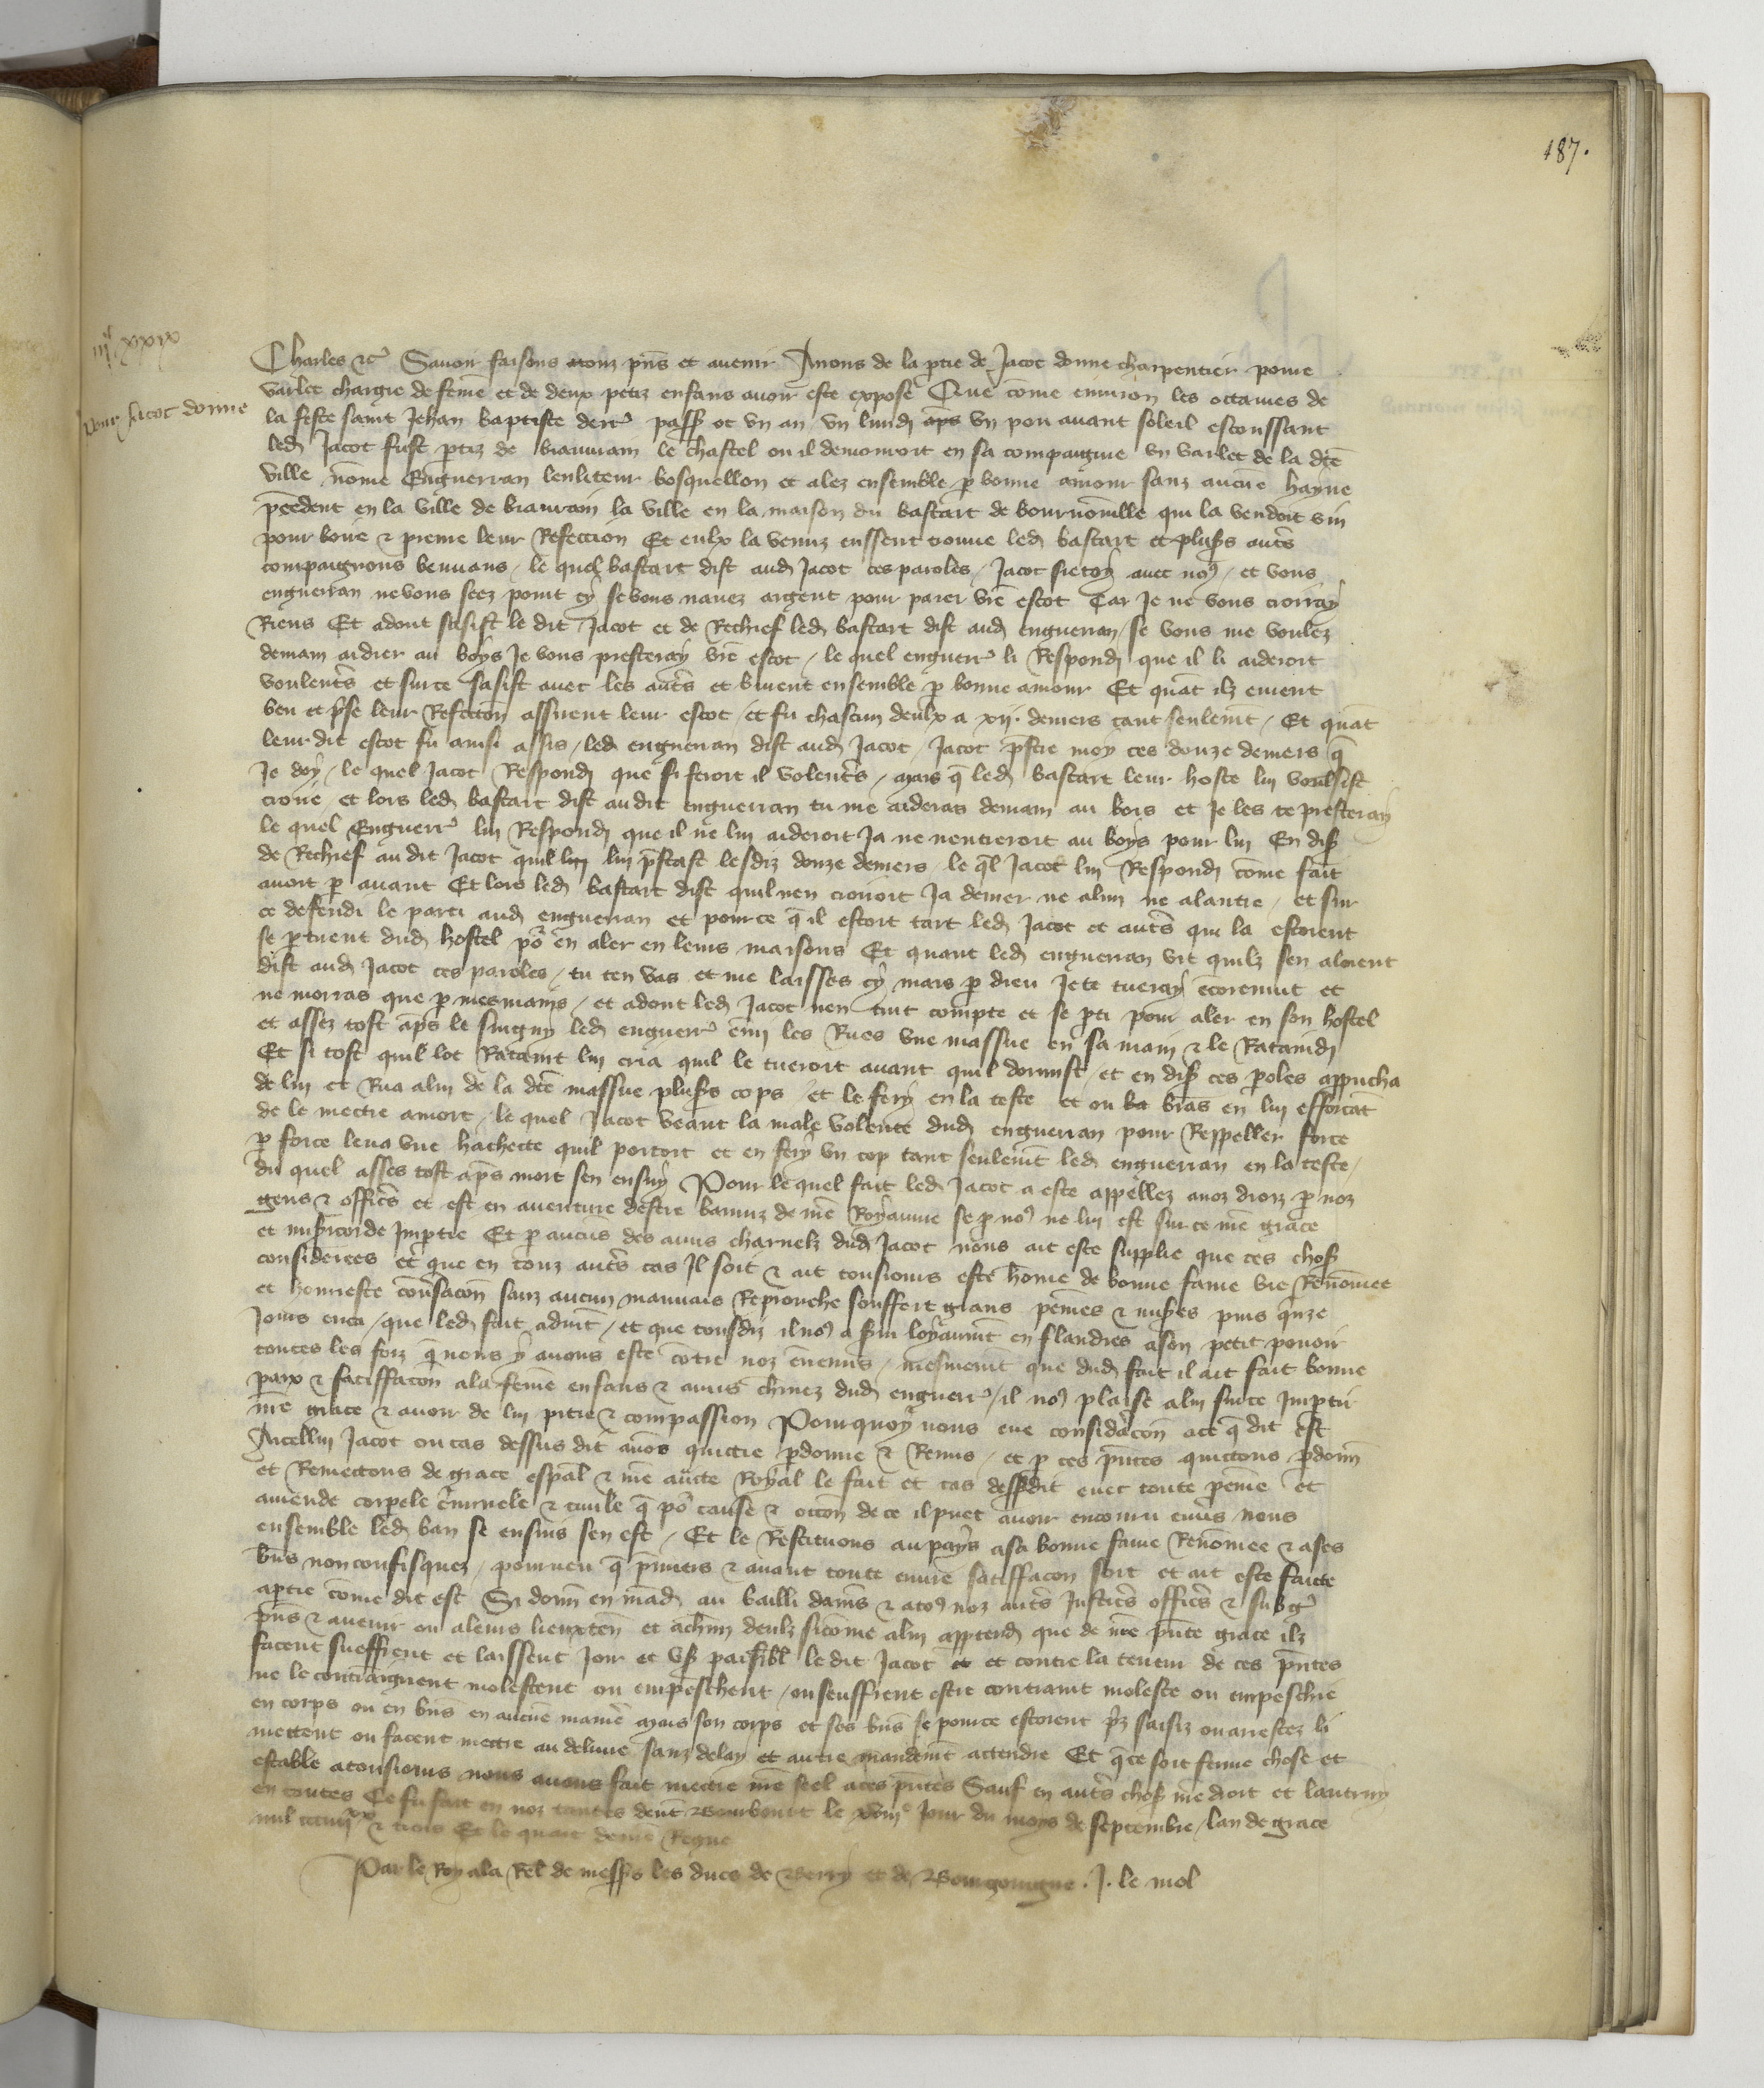 187.
iijᶜ xxix
Pour Jacot donne
Charles &c̃ Savoir faisons atouz p̃ns et avenir Anous de la p̃tie de Jacot donne charpentier povre
varlet chargie de feme et de deux petiz enfans avoir este expose Que cõme environ les octaves de
la feste saint Jehan baptiste dert̃ passe ot vn an vn lundi ap̃s vn pou avant soleil escoussant
led Jacot fust ptiz de biauvain le chastel ou il demouroit en sa compaignie vn varlet de la dc̃e
ville nõme Enguerran lenliteur bosquellon et alez ensemble p bonne amour sanz aucũe hayne
p̃cedent en la ville de biaurain la ville en la maison du bastart de bournoville qui la vendoit vin
pour boire & prenre leur Refection Et eulx la venuz eussent trouve led bastart et plus̃s aut̃s
compaignons bevvans / le quel bastart dist aud Jacot ces paroles / Jacot sietoy avec no9 / et vous
enguerran ne vous seez point cy se vous navez argent pour paier vr̃e escot Car Je ne vous croiray
Riens Et adont sasist le dit Jacot et de Rechief led bastart dist aud enguerran / se vous me voulez
demain aidier au boys Je vous presteray vr̃e escot / le quel enguerr̃ li Respondi que il li aideroit
voulent̃s et surce sasist avec les aut̃s et burent ensemble p bonne amour Et quãt ilz eurent
beu et p̃se leur Refecc̃on assirent leur escot / et fu chascun deulx a xij. deniers tant seulem̃t / Et quãt
leur dit escot fu ainsi assis / led enguerran dist aud Jacot / Jacot p̃ste moy ces douze deniers q̃
Je doy / le quel Jacot Respondi que si feroit il volent̃s / mais q̃ led bastart leur hoste lui voulsist
croire / et lors led bastart dist au dit enguerran tu me aideras demain au bois et Je les te presteray
le quel Enguerr̃ lui Respondi que il ne lui aideroit Ja ne nentreroit au boys pour lui En dis̃
de Rechief au dit Jacot quil lui lui p̃stast lesdiz douze deniers / le q̃l Jacot lui Respondi cõme fait
avoit p avant Et lors led bastart dist quil nen croiroit Ja denier ne alun ne alautre / et sur
ce defendi le parti aud enguerran et pource q̃ il estoit tart led Jacot et aut̃s qui la estoient
se p̃tirent dud hostel po² en aler en leurs maisons Et quant led enguerran vit quilz sen aloient
dist aud Jacot ces paroles / tu ten vas et me laisses cy mais p dieu Je te tueray ẽcorenuit et
ne morras que p mes mains / et adont led Jacot nen tint compte et se p̃ti pour aler en son hostel
et assez tost ap̃s le suigny led enguerr̃ emi les Rues vne massue en sa main & le Rataindi
Et si tost quil lot Rataint lui cria quil le tueroit avant quil dormist / et en dis̃ ces p̃oles apprucha
de lui et Rua alui de la dc̃e massue plus̃s cops / et le fery en la teste et ou ba bras en lui efforcãt
de le mectre amort / le quel Jacot veãnt la male volente dud enguerran pour Reppeller force
p force leva vne hachette quil portoit et en fery vn cop tant seulem̃t led enguerran en la teste /
du quel asses tost ap̃s mort sen ensuy Pour lequel fait led Jacot a este appellez anoz droiz p noz
gens & offic̃s et est en aventure destre banniz de nr̃e Royaume se p no9 ne lui est sur ce nr̃e grace
et mis̃icorde imp̃tie Et p aucũs des amis charnelz dud Jacot nous ait este supplie que ces chos̃
considerees et que en touz aut̃s cas Il soit & ait tousiours este hõme de bonne fame vie Renõmee
et honneste cõvs̃acõn sanz aucun mauvais Reprouche souffert grans peines & mis̃es puis q̃nze
Jours enca / que led fait advint / et que tousdiz il no9 a s̃vi loyaum̃t en flandres a son petit povoir
toutes les foiz q̃ nous y avons este cõtre noz ẽnemis / mesmem̃t que dud fait il ait fait bonne
paix & satiffacõn ala feme enfans & amis chnez dud enguerr̃ / il no9 plaise alui surce imp̃tir
nr̃e grace & avoir de lui pitie & compassion Pourquoy nous eue consid̃acõn ace q̃ dit est
Aicellui Jacot ou cas dessus dit avõs quictie p̃donne & Remis / et p ces p̃ntes quictons p̃donñ
et Remectons de grace esp̃al & nr̃e aucte Royal le fait et cas dess̃dit avec toute peine et
amende corpele crimnele & civile q̃ po² cause & occõn de ce il puet avoir encouru envs̃ nous
ensemble led ban se ensuis sen est / Et le Restituons au pays a sa bonne fame Renõmee & a ses
biñs non confisquez / pourveu q̃ p̃miers & avant toute euvre satiffacõn soit et ait este faicte
apartie cõme dit est Si donñ en mãd au bailli damiẽs & ato9 noz aut̃s Justic̃s offic̃s & subg̃
p̃ns & avenir ou aleurs lieuxteñ et achũn deulx sicõme alui app̃tend que de nr̃e p̃nte grace ilz
facent sueffrent et laissent Joir et vs̃ paisibl̃ le dit Jacot et et contre la teneur de ces p̃ntes
ne le contraignent molestent ou empeschent / ou seuffrent estre contraint moleste ou empeschie
en corps ou en biñs en aucũe mañe mais son corps et ses biñs se pource estoient p̃s saisiz ou arrestez li
mettent ou facent mectre au delivre sanz delay et autre mandem̃t actendre Et q̃ ce soit ferme chose et
estable atousiours nous avons fait mectre nr̃e seel aces p̃ntes Sauf en aut̃s chos̃ nr̃e droit et lautruy
en toutes Ce fu fait en noz tentes devãt Bourbourt le xviijᵉ Jour du moys de septembre / lan de grace
mil ccciiijˣˣ & trois Et le quart de nr̃e Regne
Par le Roy ala Rel̃ de mess̃s les ducs de Berry et de Bourgoingne . J. le mol